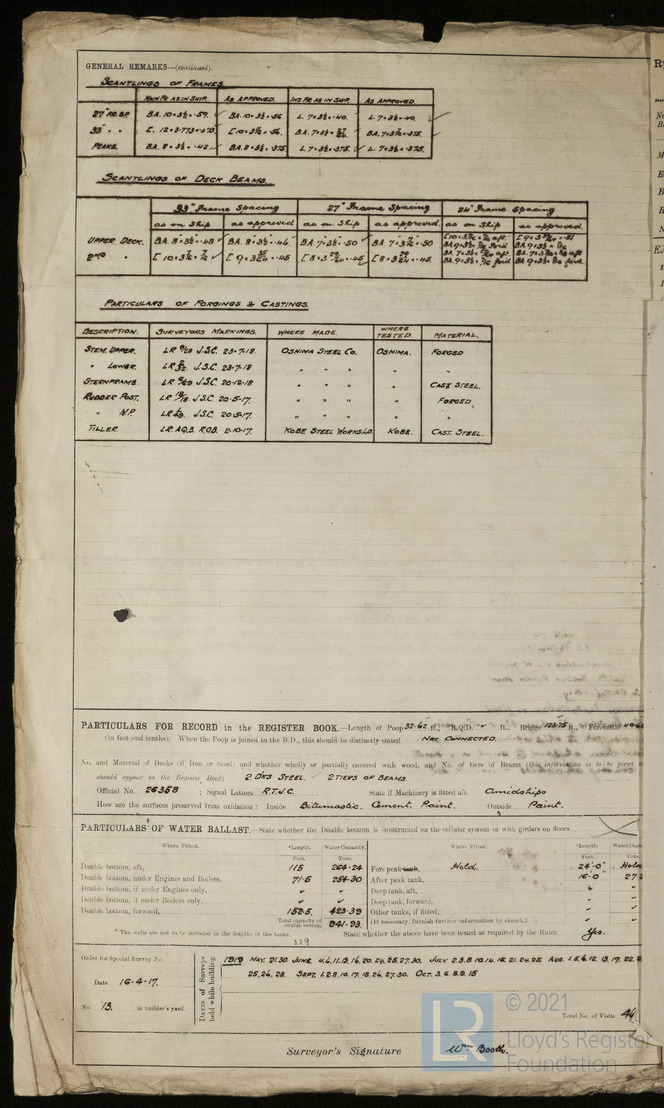 GENERAL REMARKS—(continued).
SCANTLINGS OF FRAMES
MAIN FR AS IN SHIP. AS APPROVED. INT FR AS IN SHIP. AS APPROVED.
27" FR. S.P. B.A. 10 × 3½ × .59. ✓ B.A. 10 × 3½ × .56 L. 7 × 3½ × .40. L. 7 × 3½ × .40. ✓
33" " "
PEAKS. B.A. 8 × 3½ × .42 ✓ B.A. 8 × 3½ × .375 L. 7 × 3½ × .375 ✓ L. 7 × 3½ × .375.
SCANTLINGS OF DECK BEAMS.
33" Frame Spacing 27" Frame Spacing 24" Frame Spacing
as on Ship as approved as on Ship as approved. as on Ship as approved.
UPPER DECK. B.A. 8 × 3½ × .48 ✓ B.A. 8 × 3½ × .46. B.A. 7 × 3½ × .50 ✓ B.A. 7 × 3½ × .50
2ND "
PARTICULARS OF FORGINGS & CASTINGS.
DESCRIPTION. SURVEYORS MARKINGS. WHERE MADE. WHERE TESTED. MATERIAL.
STEM, UPPER. LR J.S.C. 23-7-18 OSHIMA STEEL Co. OSHIMA. FORGED
" LOWER. LR J.S.C. 23-7-18 " " " " "
STERNFRAME. LR J.S.C. 20-12-18 " " " " CAST STEEL.
RUDDER POST. LR J.S.C. 20-5-17. " " " " FORGED
" N.P. LR J.S.C. 20-5-17. " " " " "
TILLER LR. A.Q.S. R.O.B. 2-10-17. KOBE STEEL WORKS Ld. KOBE. CAST. STEEL.
PARTICULARS FOR RECORD in the REGISTER BOOK.—Length of Poop 32.62 ft., R.Q.D. ft., Bridge 123.75 ft., Forecastle
(in feet and tenths). When the Poop is joined to the B.D., this should be distinctly stated NOT CONNECTED.
No. and Material of Decks (if Iron or Steel) and whether wholly or partially covered with wood, and No. of tiers of Beams (this information is to be given
should appear in the Register Book) 2 DKS STEEL. 2 TIERS OF BEAMS.
Official No. 26358 ; Signal Letters R.T.J.C. State if Machinery is fitted aft Amidships
How are the surfaces preserved from oxidation? Inside Bitumastic. Cement. Paint. Outside Paint.
PARTICULARS OF WATER BALLAST.—State whether the Double bottom is constructed on the cellular system or with girders on floors.
Where Fitted. *Length. Water Capacity. Where Fitted. *Length. Water Capac
Feet. Tons. Feet. Tons.
Double bottom, aft, 115 264.24 Fore peak tank, Hold. 24'.0" Hold
Double bottom, under Engines and Boilers, 71.5 254.30 After peak tank, 16'.0 27.
Double bottom, if under Engines only, " " Deep tank, aft, " "
Double bottom, if under Boilers only, " " Deep tank, forward, " "
Double bottom, forward, 152.5. 423.39 Other tanks, if fitted, " "
Total capacity of double bottom 941.93. (If necessary, furnish further information by sketch.)
* The wells are not to be included in the lengths of the tanks. State whether the above have been tested as required by the Rules Yes.
339
Order for Special Survey No.
Date 16-4-17.
No. 13. in builder's yard.
DATES of Surveys held while building
1919 MAY. 21.30. JUNE. 4.6.11.13.16.20.24.25.27.30. JULY. 2.3.8.10.14.16.21.24.25. AUG. 1.5.6.12.13.19.22.
25.26.28. SEPT. 1.2.8.10.17.18.26.27.30. OCT. 3.6.8.9.15
Total No. of Visits 44
Surveyor's Signature Wm Booth.
© 2021
LR
Lloyd's Register
Foundation